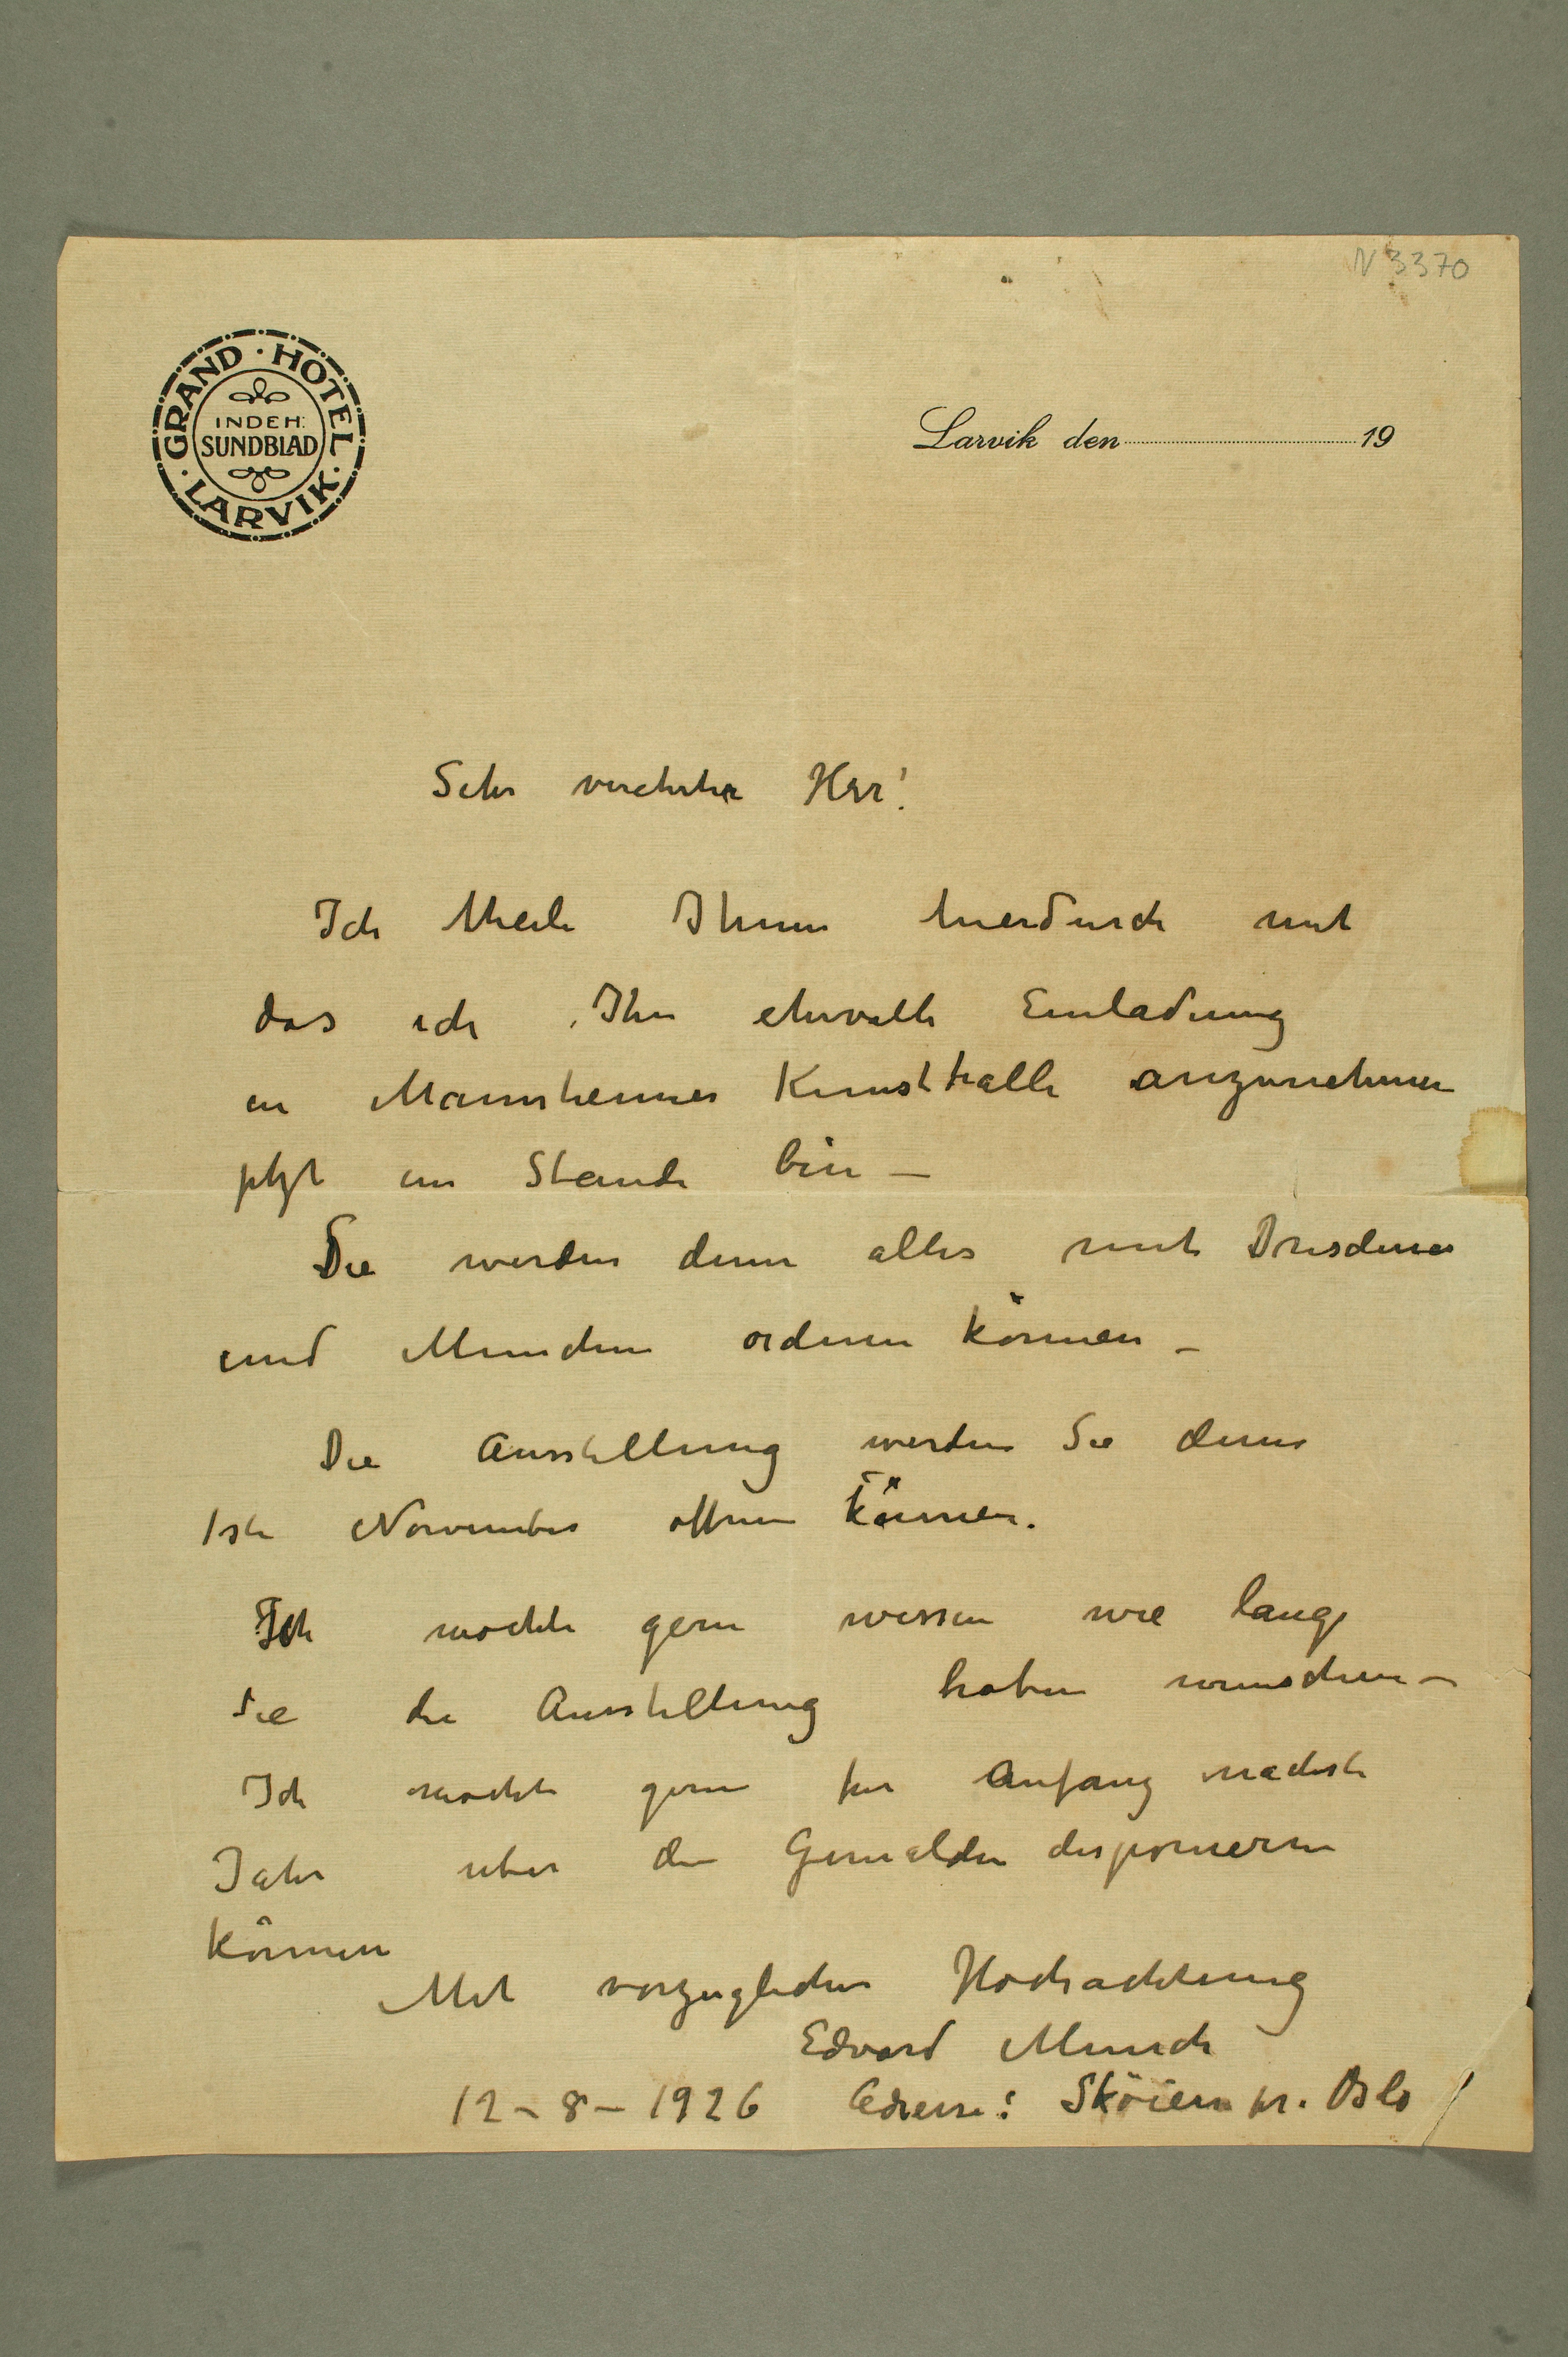 N 3370
GRAND · HOTEL · LARVIK ·
INDEH:
SUNDBLAD
Larvik den 19
Sehr verehrter Herr!
Ich theile Ihnen hierdurch mit
das ich Ihre ehrvolle Einladung
in Mannsheimer Kunsthalle anzunehmen
jetzt im Stande bin –
Sie werden denn alles mit Dresdener
und Munchen ordenen können –
Die Ausstellung werden Sie denn
1ste November offnen können.
Ich mochte gern wissen wie lange
Sie die Ausstellung haben wunschen –
Ich mochte gerne fur Anfang nachste
Jahr uber die Gemalden disponieren
können
Mit vorzuglicher Hochachtung
Edvard Munch
12-8-1926 Adresse: Sköien pr. Oslo